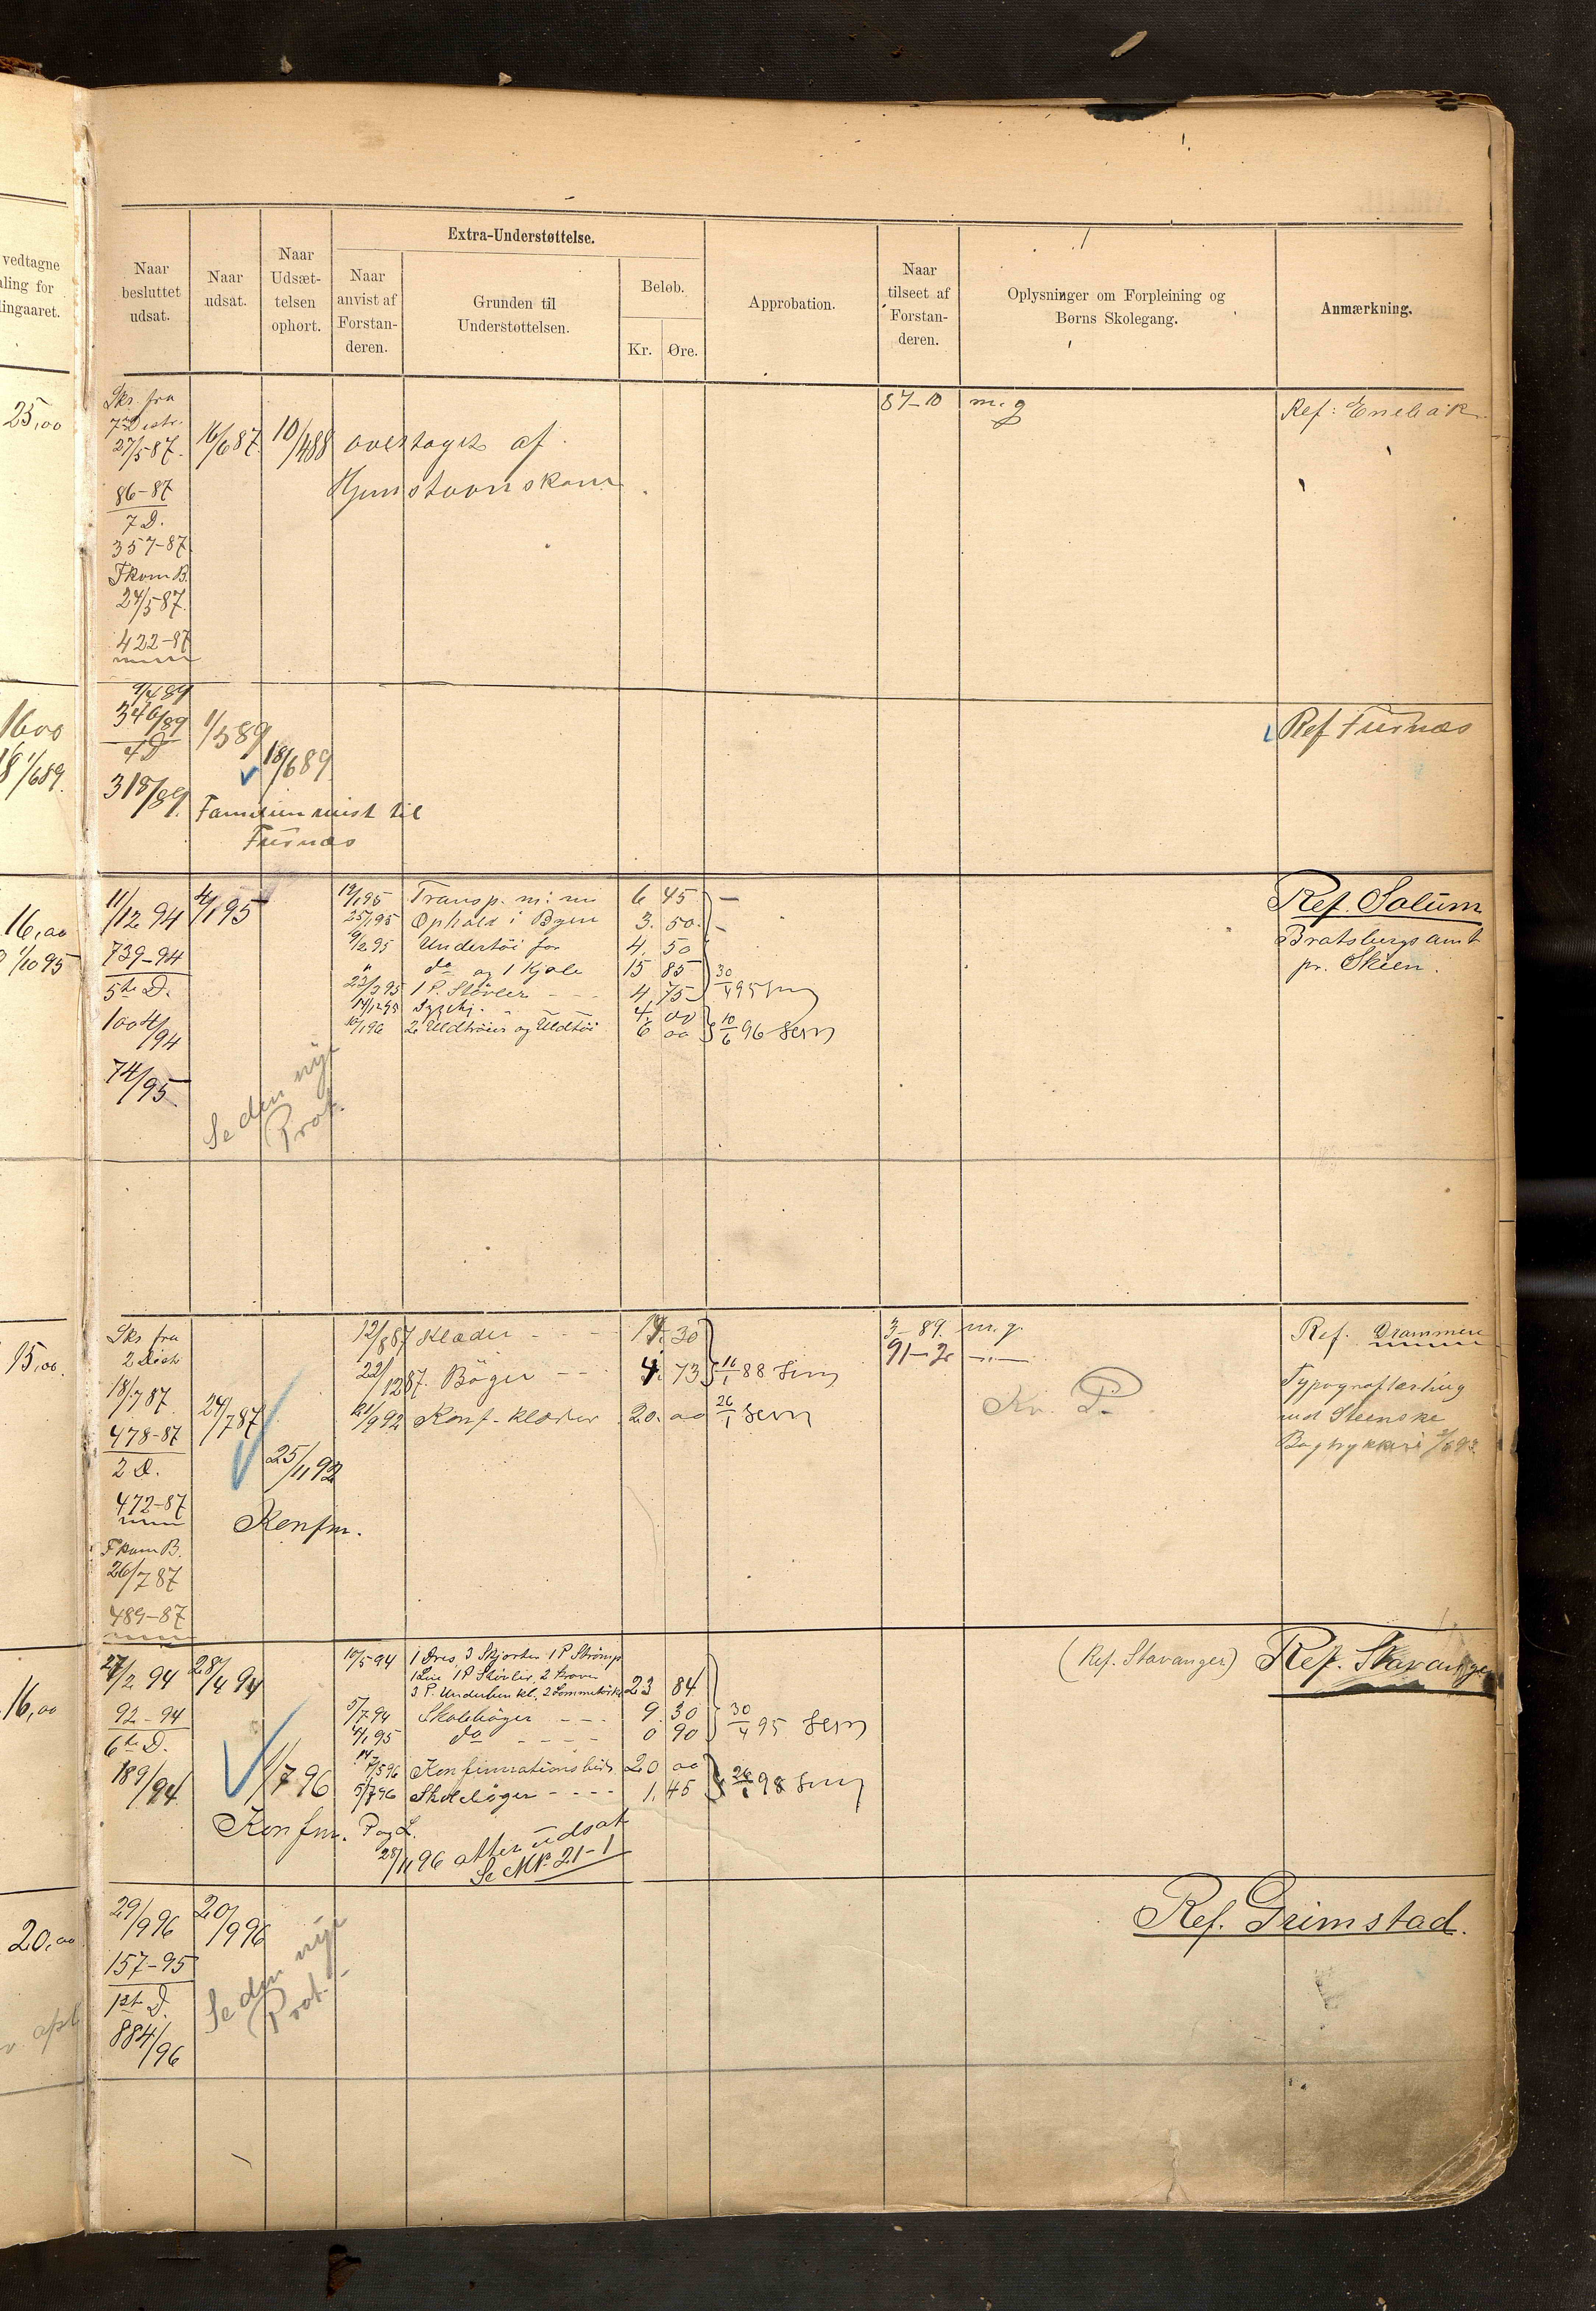 vedtagne
ling for
lingaaret.
Naar
besluttet
udsat.
Naar
udsat.
Naar
Udsæt-
telsen
ophørt.
Extra-Understøttelse.
Naar
anvist af
Forstan-
deren.
Grunden til
Understøttelsen.
Beløb.
Kr.
Øre.
Approbation.
Naar
tilseet af
Forstan-
deren.
Oplysninger om Forpleining og
Børns Skolegang.
Anmærkning.
25,00
Skr. fra
7 Distr.
27/5 87.
16/6 87.
10/4 88
overtoges af
87-10
m. g
Ref: Enebak
86-87
7 D.
357-87
Fkom B.
24/5 87.
422-87
1600
1/6 89.
9/4 89
346/89
4 D
318/89.
1/5 89
18/6 89
Familien reist til
Furnæs
Ref Furnæs
16,00
1/10 95
11/12 94
739-94
5te D.
1004/94
74/95.
4/1 95
19/1 95 Transp. m: m 6 45 -
25/1 95 Ophold i Byen 3. 50. -
9/2 95 Undertöi for 4. 50
" do og 1 Kjole 15 85
23/3 95 1 P. Støvler - - - 4,75 30/4 95
14/12 95 4. 00
10/1 96 2 Uldtröier og Uldtöi 6 00 10/6 96
Ref. Solum
Bratsbergs amt
pr. Skien.
Se den nye
Prot.
15,00.
Skr fra
2 Distr
18/7 87
478-87
2 D.
472-87
Fkom B.
26/7 87
489-87
24/7 87
25/11 92
Konfm.
12/8 87 Klæder - - - 30
22/12 87. Bøger - - 4. 73 11/1 88
21/9 92 Konf-klæder 20. 00 26/1
3-89. m. g.
91-2 -"-
Kv. P.
Ref. Drammen
Typograflærling
ved Steenske
Bogtrykkeri
16,00
27/2 94
92-94
6te D.
189/94
28/4 94
1/7 96
Konfm. P og L.
10/5 94 1 Dres, 3 Skjorter 1 P Strömp
1 Lue 1 P Støvler, 2
3 P. Underben kl., 2 Lommetörkl 23 84
5/7 94 Skolebøger - - - 9. 30
4/1 95 do - - - - 0 90 30/4 95
14/5 96 Konfirmationsbidr 20 00
5/7 96 Skolebøger - - - - 1,45 98
28/11 96 atter udsat
Se Nr. 21-1
(Ref. Stavanger)
Ref. Stavanger
20,00
29/9 96
157-95
1ste D.
884/96
20/9 96
Se den nye
Prot.
Ref. Grimstad.